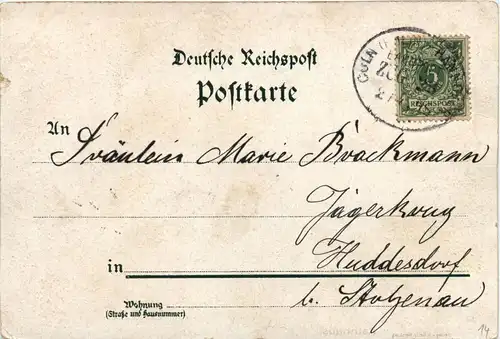 Deutsche Reichspost
Postkarte
CÖLN
ZUG
5
REICHSPOST
An
Fräulein Marie Brockmann
Jägerkrug
Huddesdorf
in
b. Stolzenau
Wohnung
(Straße und Hausnummer)
14